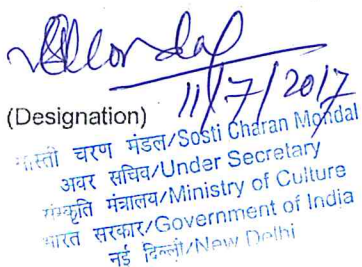 11/7/2017
(Designation)
चरण मंडल/Sosti Charan Mondal
अवर सचिव/Under Secretary
संस्कृति मंत्रालय/Ministry of Culture
भारत सरकार/Government of India
नई दिल्ली/New Delhi